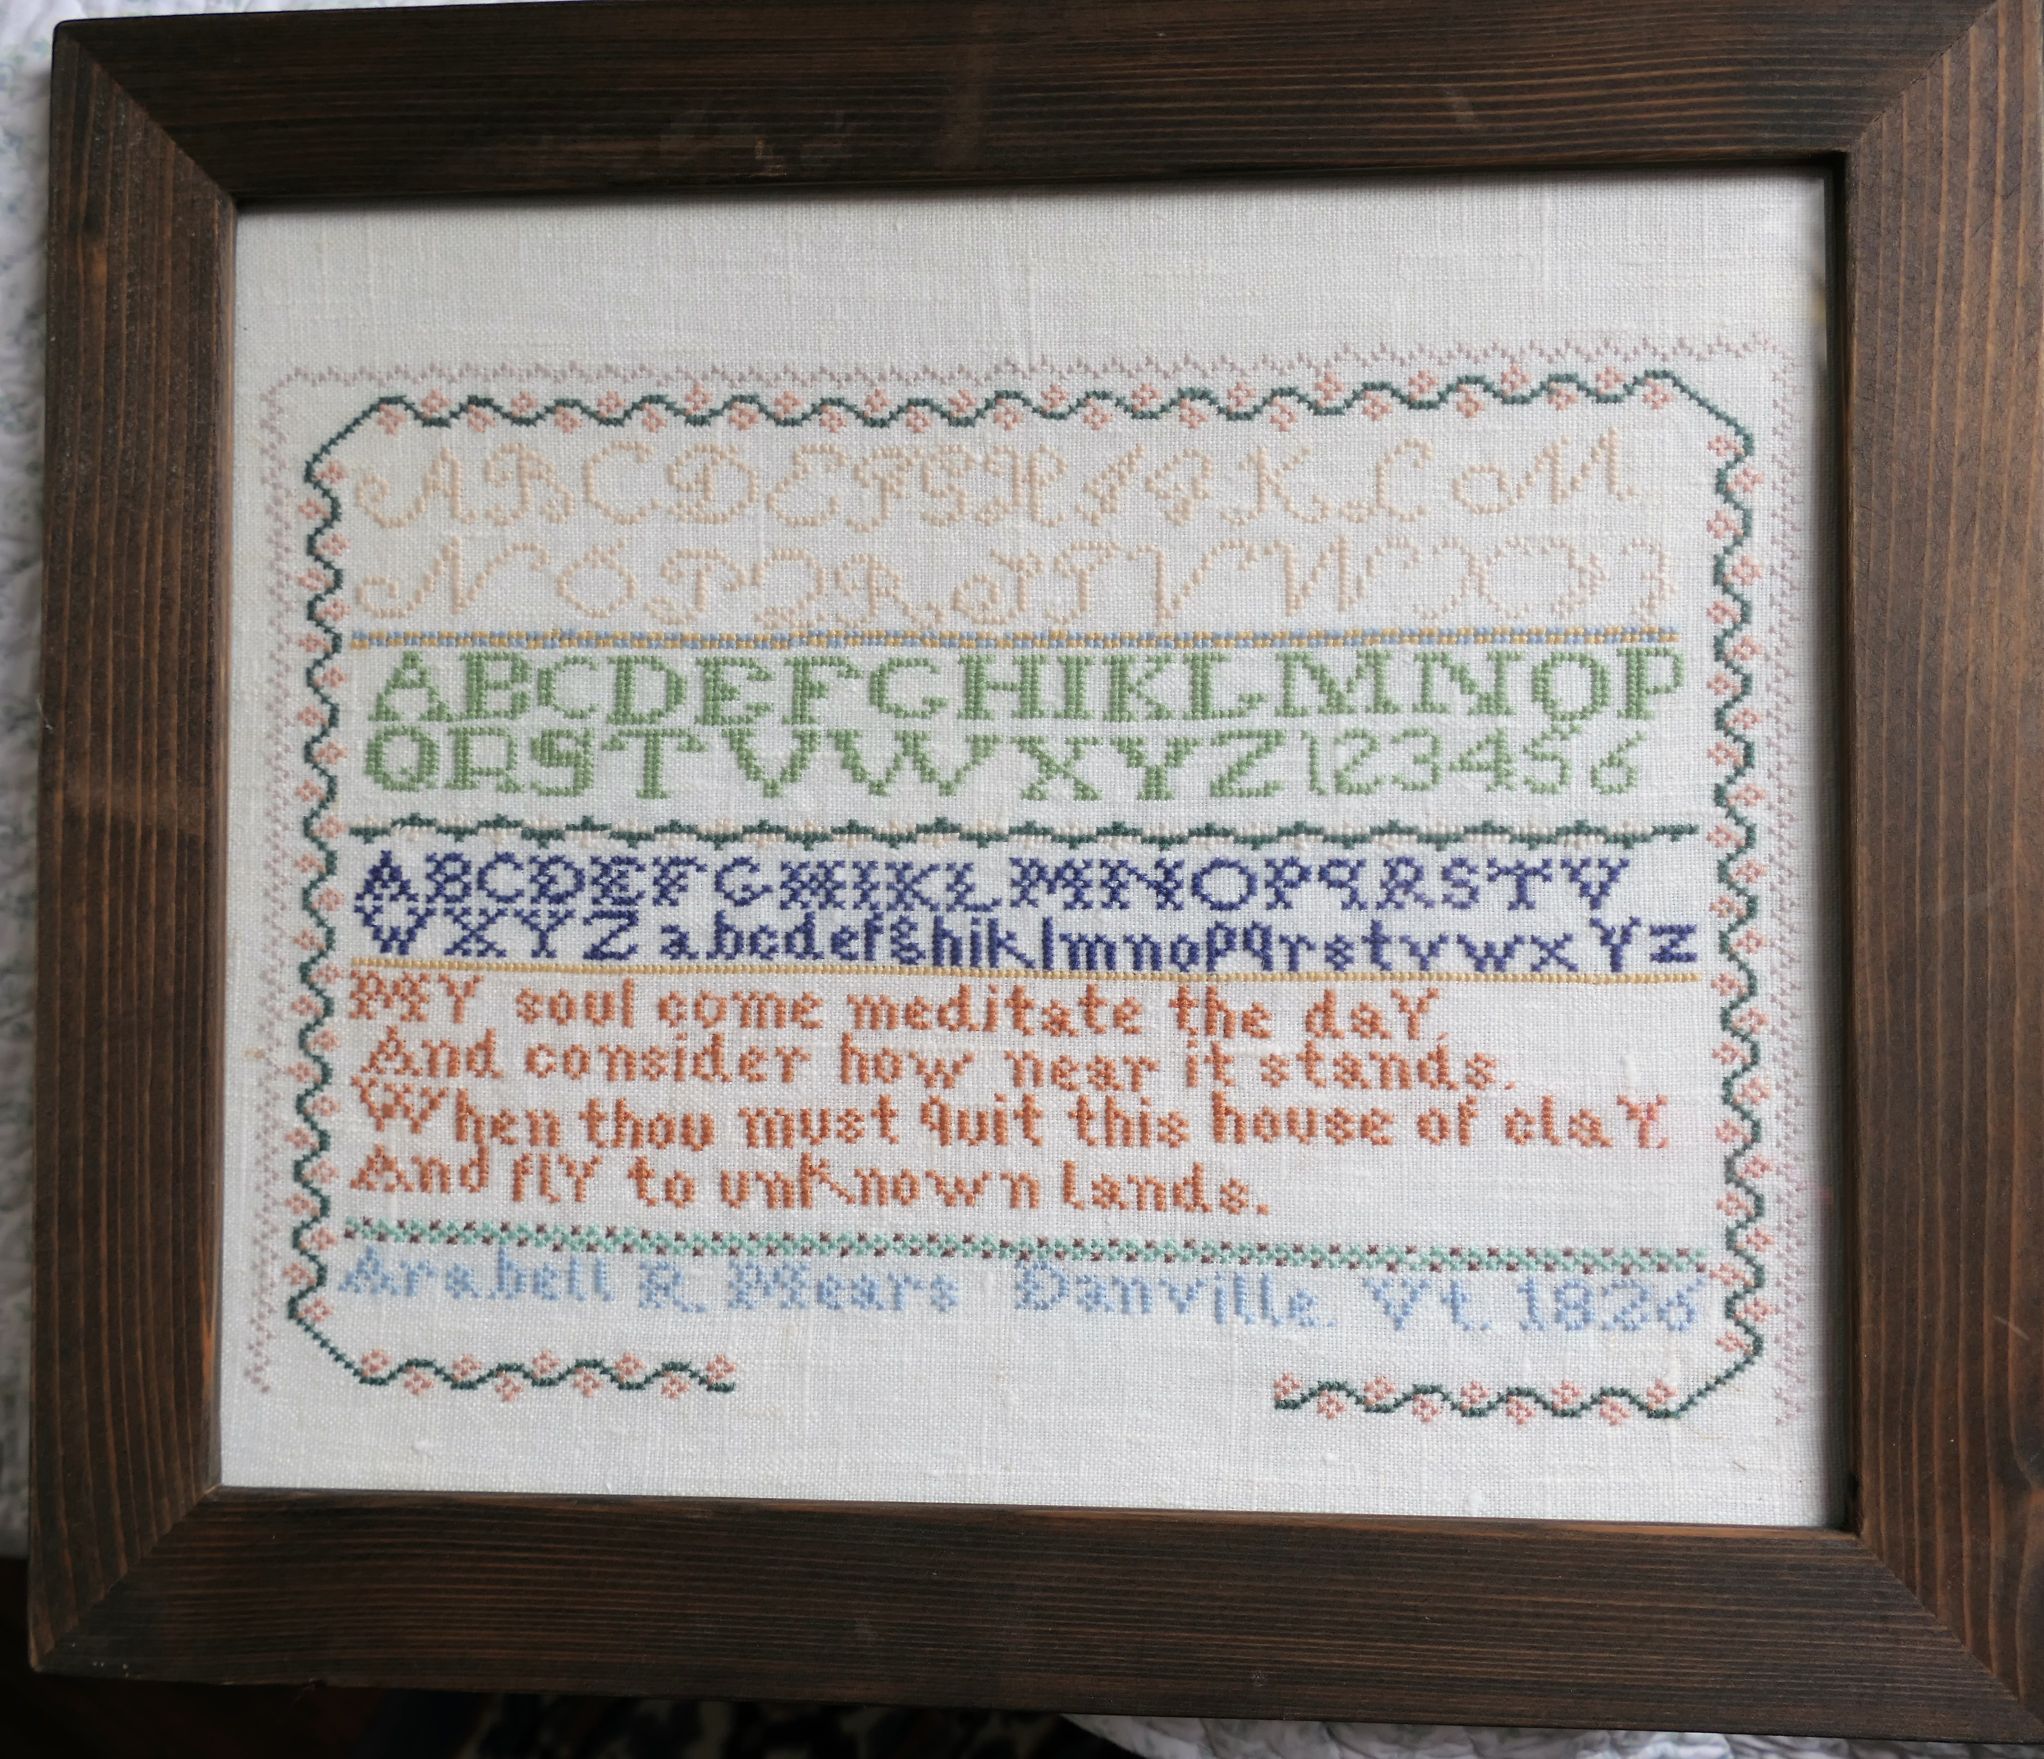 A B C D E F G H I J K L M
N O P Q R S T V W X Y Z
A B C D E F G H I K L M N O P
Q R S T V W X Y Z 1 2 3 4 5 6
A B C D E F G H I K L M N O P Q R S T V
W X Y Z a b c d e f g h i k l m n o p q r s t v w x y z
My soul come meditate the day,
And consider how near it stands.
When thou must quit this house of clay,
And fly to unknown lands.
Arabell R. Mears Danville. Vt. 1826